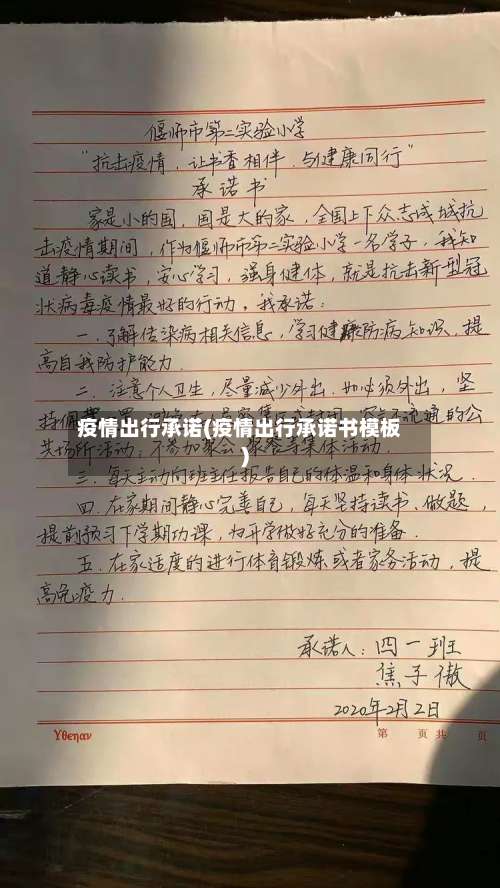 偃师市第二实验小学
"抗击疫情，让书香相伴，与健康同行"
承诺书
家是小的国，国是大的家，全国上下众志成城抗
击疫情期间，作为偃师市第二实验小学一名学子，我知
道静心读书，安心学习，强身健体，就是抗击新型冠
状病毒疫情最好的行动。我承诺：
一.了解传染病相关信息，学习健康防病知识，提
高自我防护能力.
二.注意个人卫生，尽量减少外出.如必须外出，坚
持佩 的公
疫情出行承诺(疫情出行承诺书模板
共场所活动，不参加聚会 聚餐等集体活动.
)
三.每天主动向班主任报告自己的体温和身体状况.
四.在家期间静心完善自己，每天坚持读书、做题，
提前预习下学期功课，为开学做好充分的准备.
五.在家适度的进行体育锻炼或者家务活动，提
高免疫力.
承诺人：四一班
焦子傲
2020年2月2日
Yθeηαν
第 页 共 页